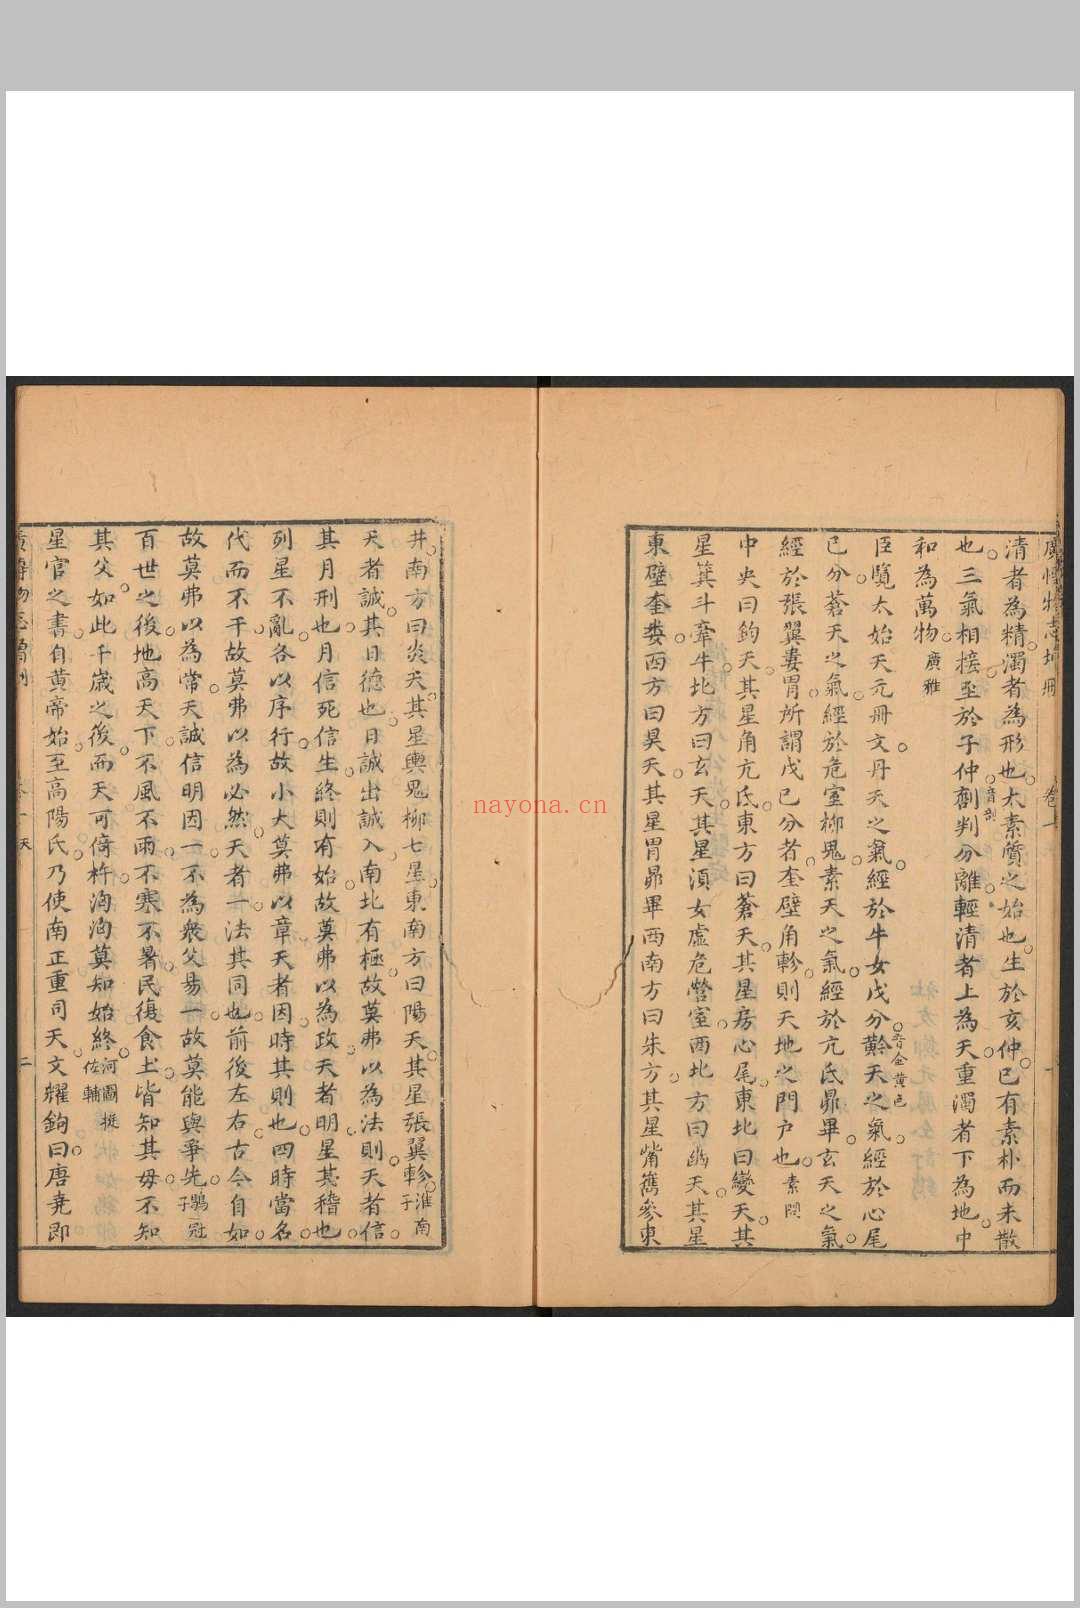 廣博物志增刪 卷十
清者為精濁者為形也太素質之始也生於亥仲巳有素朴而未散
也三氣相接至於子仲剖判分離輕清者上為天重濁者下為地中
和為萬物廣雅
臣覽太始天元冊文丹天之氣經於牛女戊分黅天之氣經於心尾
音金黃色
已分蒼天之氣經於危室柳鬼素天之氣經於亢氐昴畢玄天之氣
經於張翼婁胃所謂戊已分者奎壁角軫則天地之門户也素問
中央曰鈞天其星角亢氐東方曰蒼天其星房心尾東北曰變天其
星箕斗牽牛北方曰玄天其星湏女虛危營室西北方曰幽天其星
東壁奎婁西方曰昊天其星胃昴畢西南方曰朱方其星觜觿參東
井南方曰炎天其星輿鬼柳七星東南方曰陽天其星張翼軫淮南子
天者誠其日德也日誠出誠入南北有極故莫弗以為法則天者信
其月刑也月信死信生終則有始故莫弗以為政天者明星其稽也
列星不亂各以序行故小大莫弗以章天者因時其則也四時當名
代而不干故莫弗以為必然天者一法其同也前後左右古今自如
故莫弗以為常天誠信明因一不為衆父易一故莫能與爭先鶡冠子
百世之後地高天下不風不雨不寒不暑民復食土皆知其母不知
其父如此千歲之後而天可倚杵洶洶莫知始終河圖挺佐輔
星官之書自黃帝始至高陽氏乃使南正重司天文耀鉤曰唐堯即
廣博物志增刪 卷十 天 二
nayona.cn